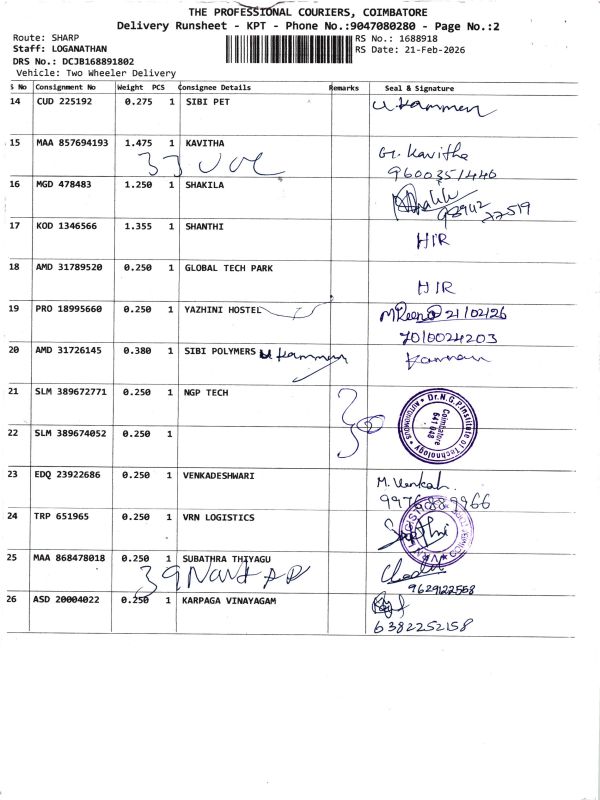 THE PROFESSIONAL COURIERS, COIMBATORE
Delivery Runsheet - KPT - Phone No.:9047080280 - Page No.:2
Route: SHARP
RS No.: 1688918
Staff: LOGANATHAN
RS Date: 21-Feb-2026
DRS No.: DCJB168891802
Vehicle: Two Wheeler Delivery
S No Consignment No Weight PCS Consignee Details Remarks Seal & Signature
14 CUD 225192 0.275 1 SIBI PET
15 MAA 857694193 1.475 1 KAVITHA
G. Kavitha
9600351440
16 MGD 478483 1.250 1 SHAKILA
17 KOD 1346566 1.355 1 SHANTHI
HIR
18 AMD 31789520 0.250 1 GLOBAL TECH PARK
HIR
19 PRO 18995660 0.250 1 YAZHINI HOSTEL 21/02/26
7010024203
20 AMD 31726145 0.380 1 SIBI POLYMERS
21 SLM 389672771 0.250 1 NGP TECH
Dr.N.G.P.Institute of Technology
AUTONOMOUS
Coimbatore
641 048
22 SLM 389674052 0.250 1
23 EDQ 23922686 0.250 1 VENKADESHWARI
M. Venkah
24 TRP 651965 0.250 1 VRN LOGISTICS
25 MAA 868478018 0.250 1 SUBATHRA THIYAGU
9629122558
26 ASD 20004022 0.250 1 KARPAGA VINAYAGAM
6382252158